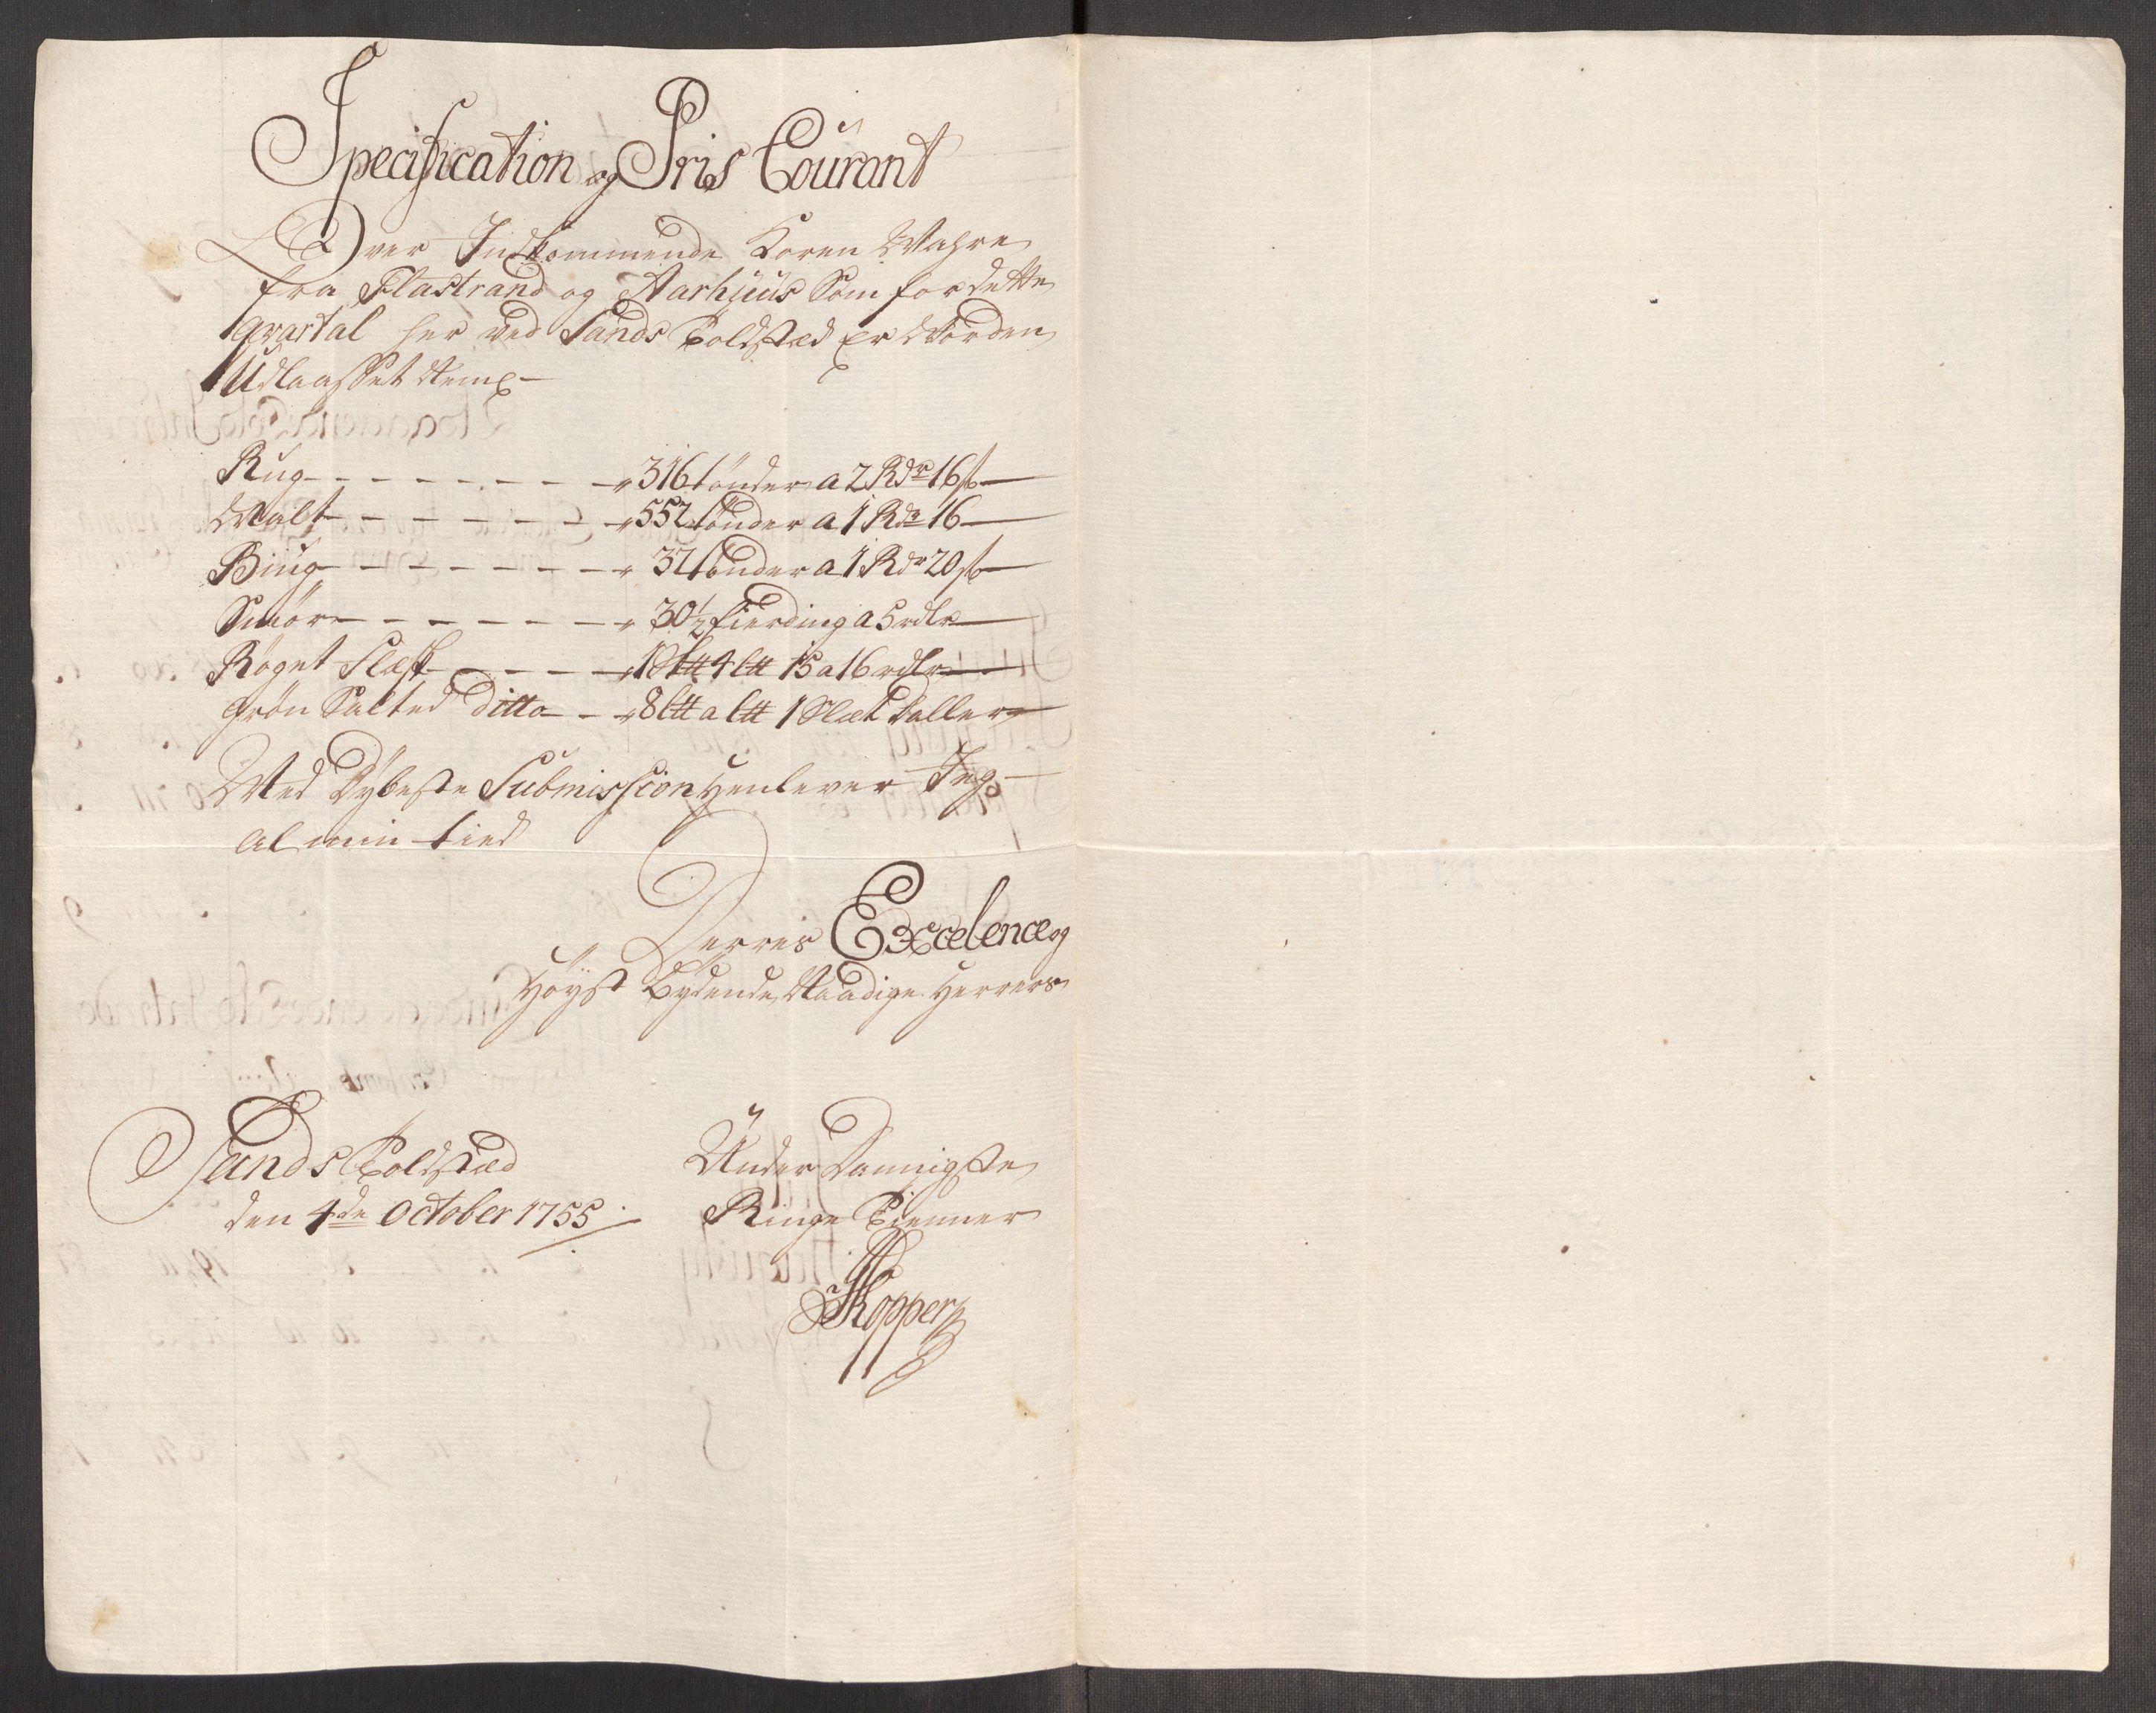 Specification og Pris Courant
Over Indkommende Koren Wahre
fra Flastrand og Aarhuus Som for dette
Qvartal her ved Sands Toldsted er Worden
Udlaasset Neml
Rug - - - - - - - - 316 tønder a 2 Rdr 16 s
Malt - - - - - - - 552 tønder a 1 Rdr 16
Biug - - - - - - - - 32 tønder a 1 Rdr 20 s
Smør - - - - - - - 30 1/2 fierding a 5 rdlr
Røget Flæsk - - - - 1 4 15 a 16 rdlr
Grøn Salted Ditto - - 8 a 1 Slet daller
Med Dybeste Submission henlever Jeg
al min tied
Derres Excelence og
Høyst Bydende Naadige Herrers
Sands Toldsted
den 4de October 1755
Under Dannigste
Ringe Tienner
Kopper